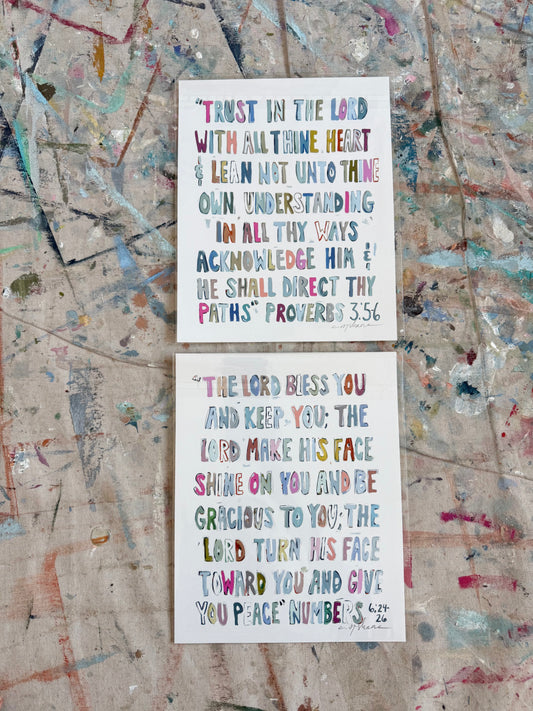 "TRUST IN THE LORD
WITH ALL THINE HEART
& LEAN NOT UNTO THINE
OWN UNDERSTANDING
IN ALL THY WAYS
ACKNOWLEDGE HIM &
HE SHALL DIRECT THY
PATHS" PROVERBS 3:5-6
"THE LORD BLESS YOU
AND KEEP YOU; THE
LORD MAKE HIS FACE
SHINE ON YOU AND BE
GRACIOUS TO YOU; THE
LORD TURN HIS FACE
TOWARD YOU AND GIVE
YOU PEACE" NUMBERS 6:24-
26